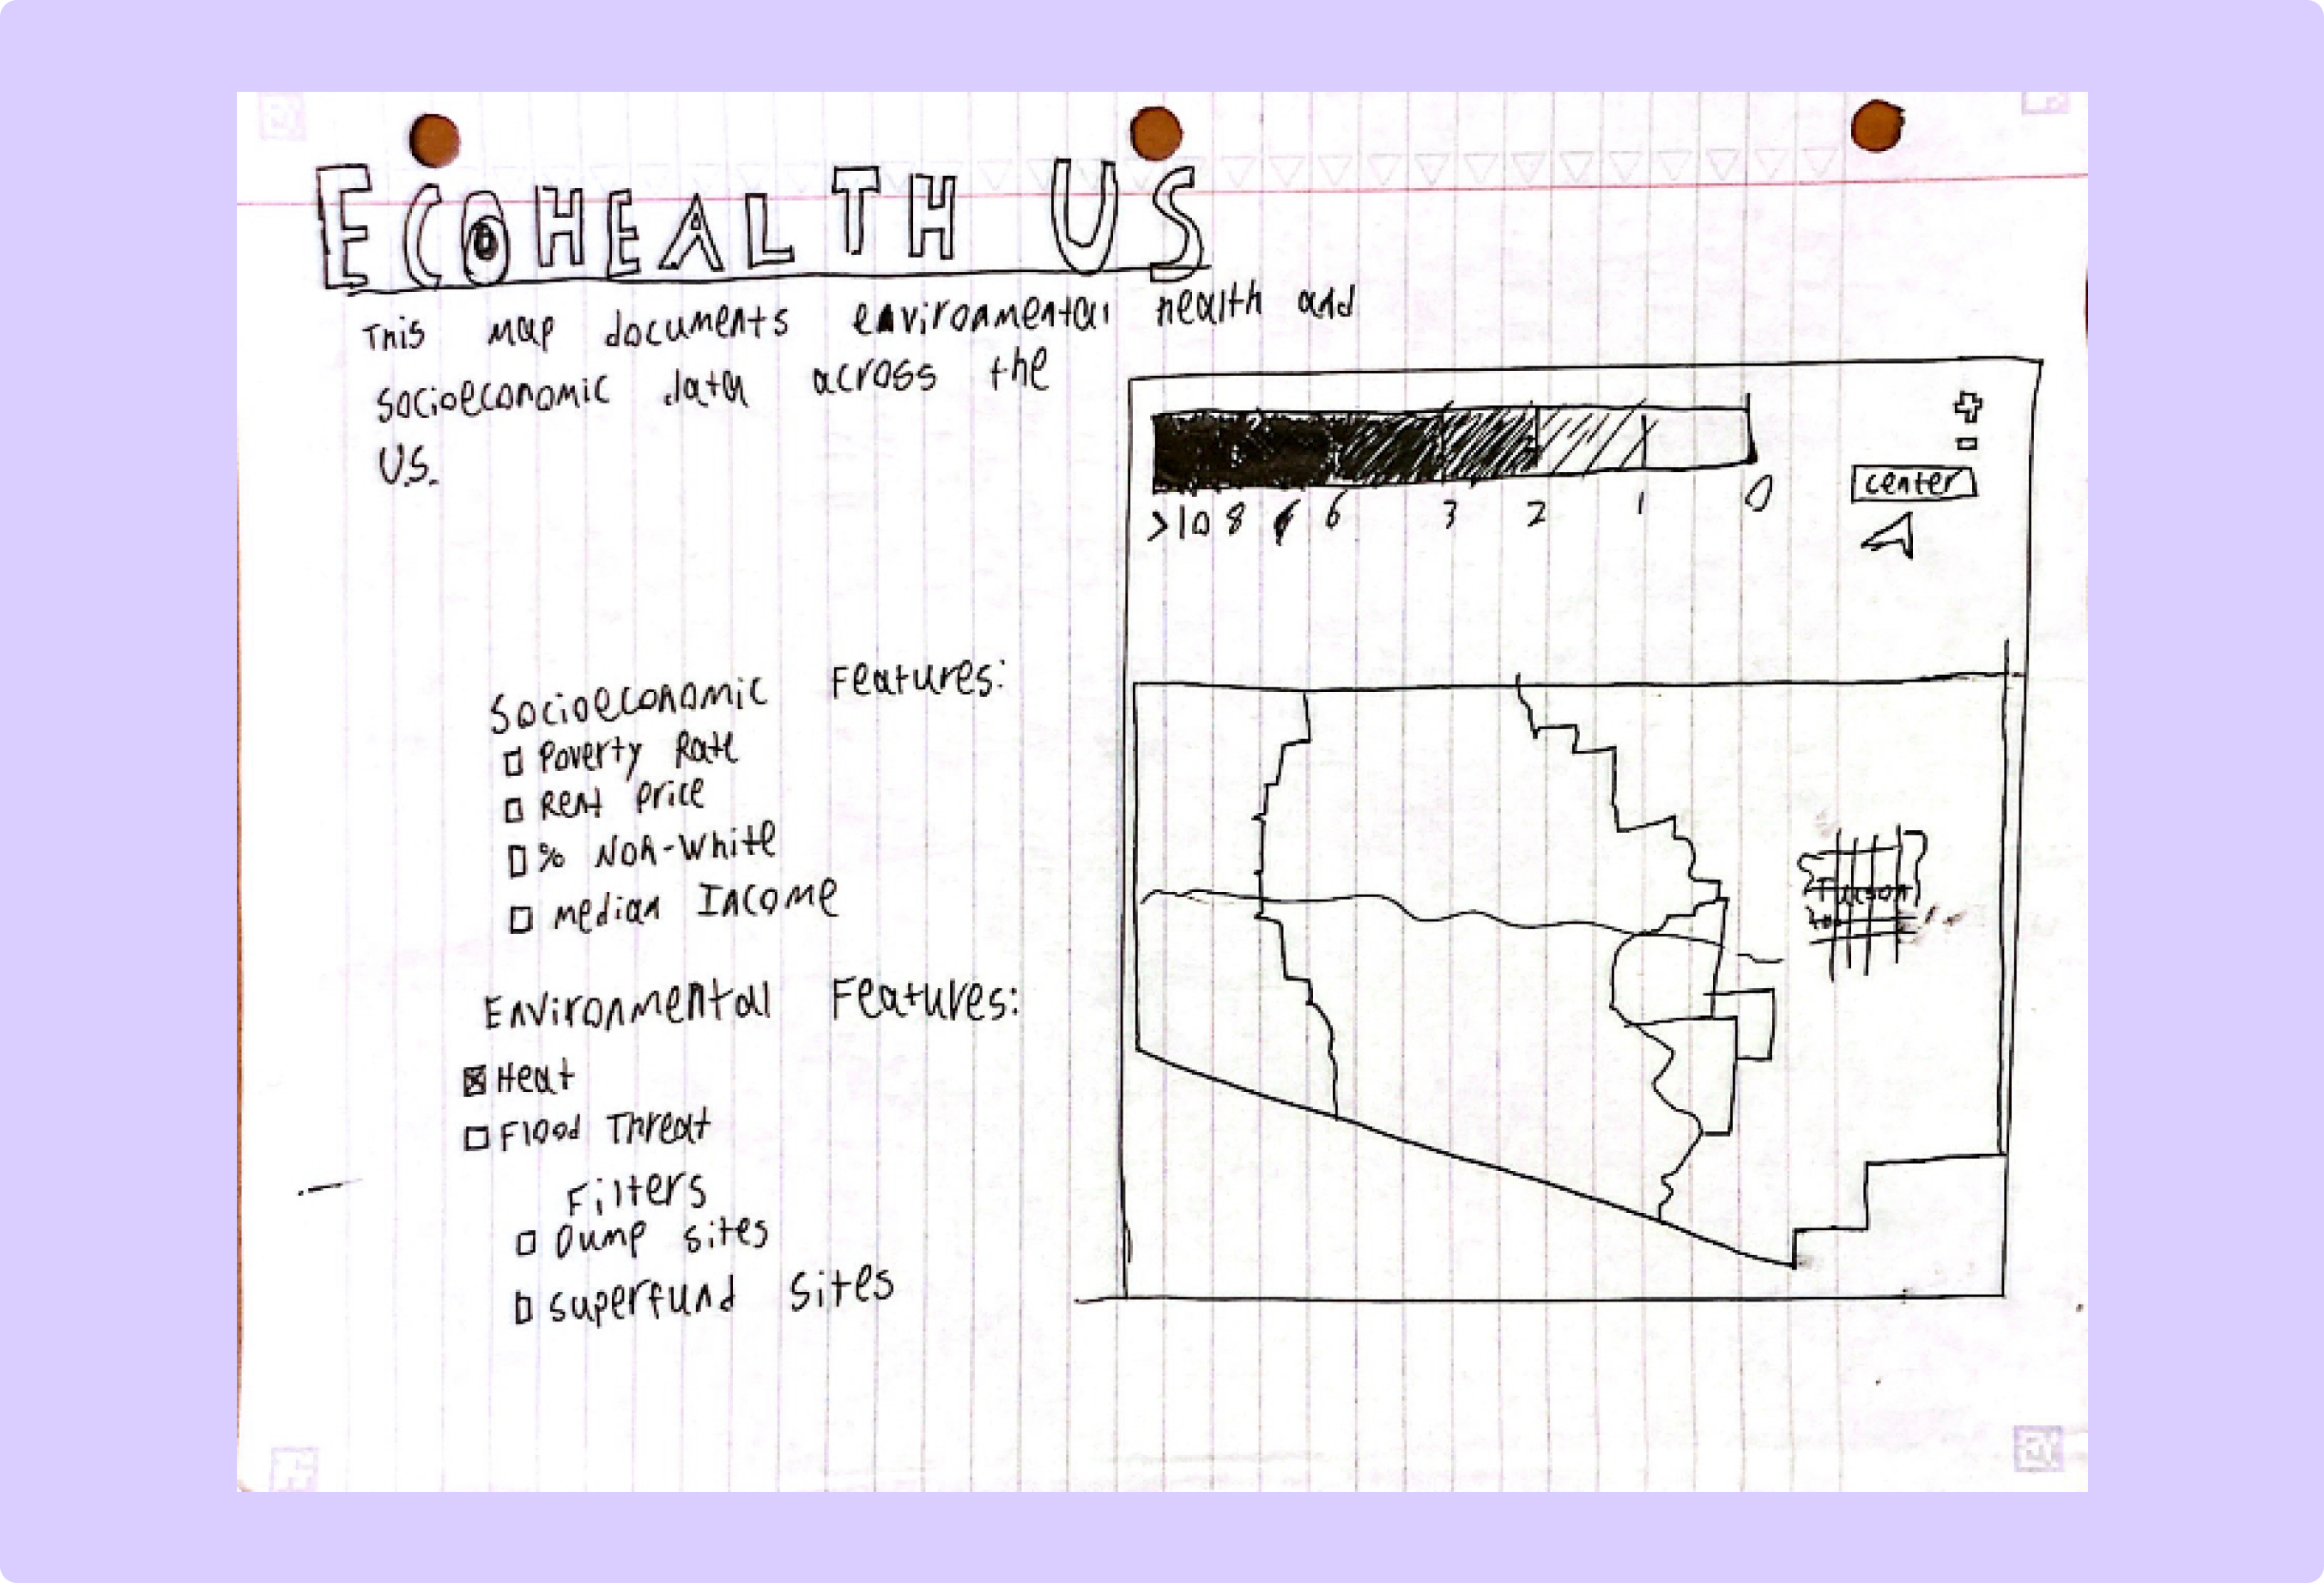 ECOHEALTH US
This map documents environmental health and
socioeconomic data across the
U.S.
>10 8 6 3 2 1 0
center
Socioeconomic Features:
Poverty Rate
Rent Price
% Non-White
median Income
Environmental Features:
Heat
Flood Threat
Filters
Dump sites
superfund sites